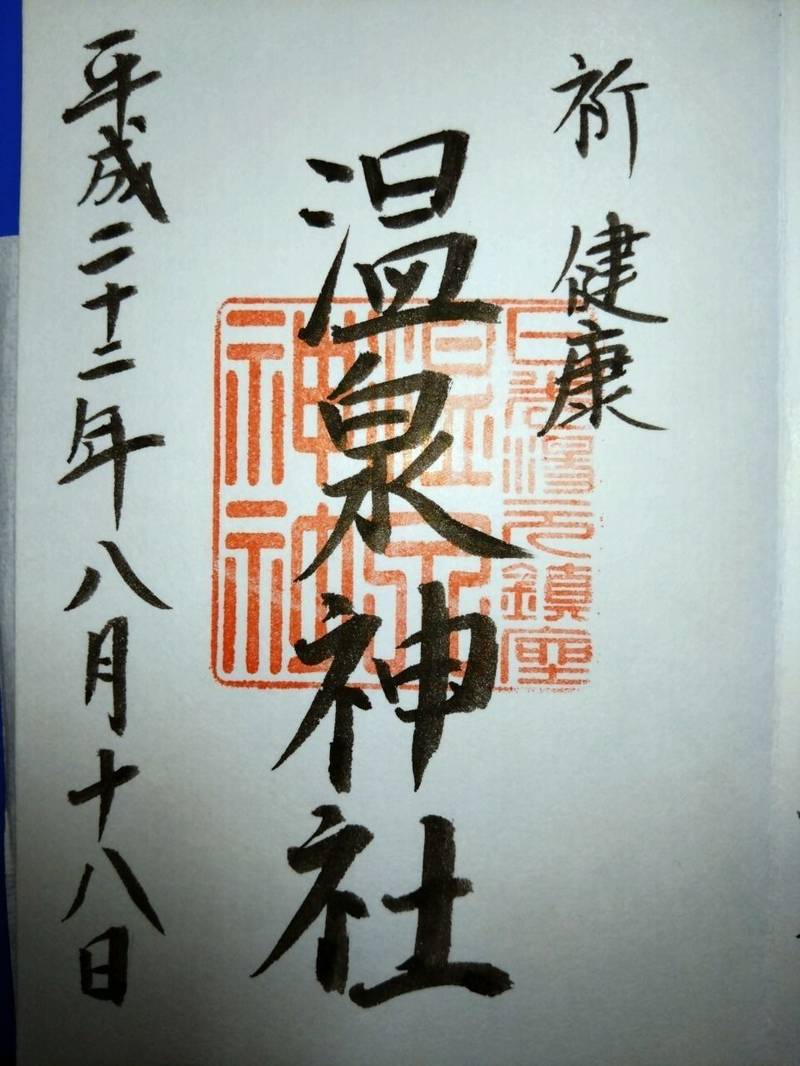 祈 健康
温泉神社
平成二十二年八月十八日
日光湯元鎮座
温泉
神社